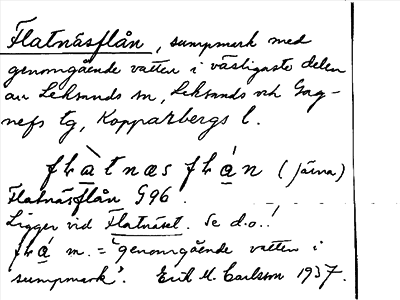 Flatnäsflån, sumpmark med
genomgående vatten i västligaste delen
av Leksands sn, Leksands och Gag-
nefs tg, Kopparbergs l.
flàtnæs flán (Järna)
Flatnäsflån G96.
Ligger vid Flatnäset. Se d.o.!
flá m. = "genomgående vatten i
sumpmark". Erik M. Carlsson 1937.